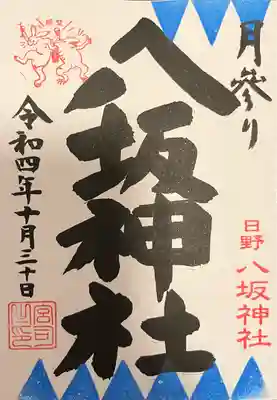 月参り
日野
八坂神社
八坂神社
令和四年十月三十日
宮司之印